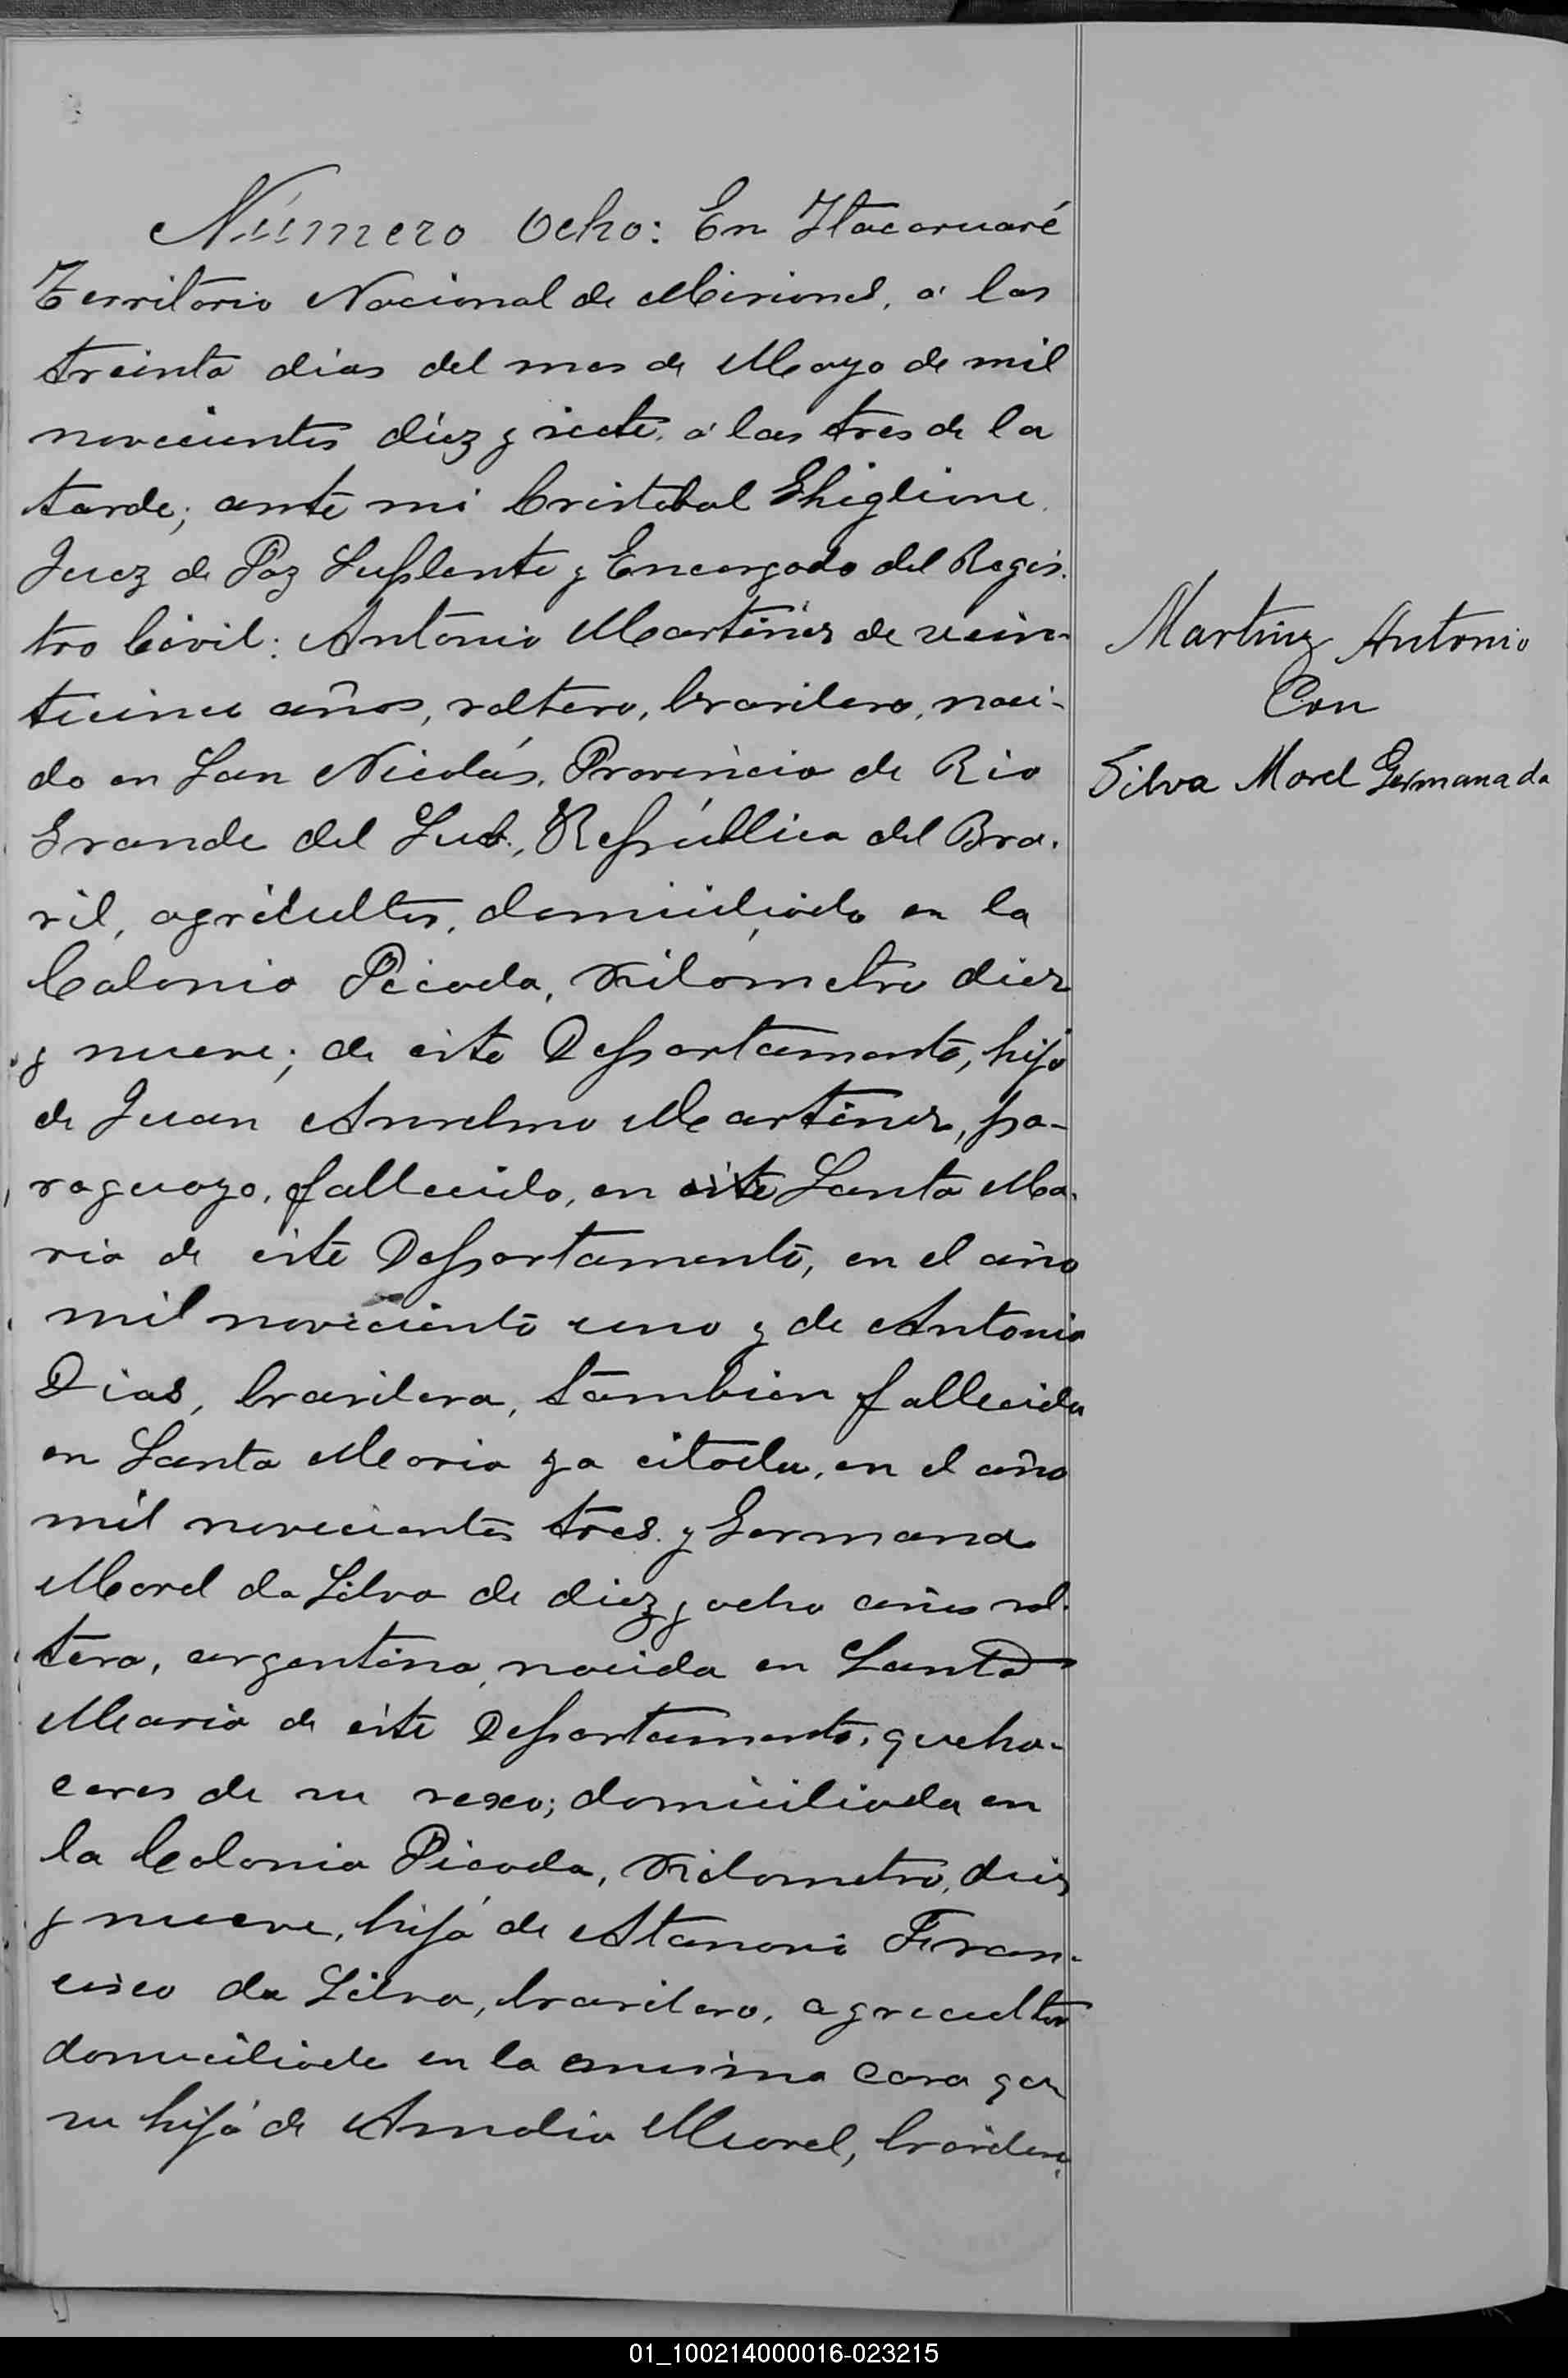 Número Ocho: En Itacaruaré
Territorio Nacional de Misiones, á los
treinta dias del mes de Mayo de mil
novecientos diez y siete, á las tres de la
tarde; ante mi Cristobal Ghiglione,
Juez de Paz Suplente y Encargado del Regis-
tro Civil: Antonio Martinez de vein-
ticinco años, soltero, brasilero, naci-
do en San Nicolás, Provincia de Rio
Grande del Sud, República del Bra-
sil, agricultor, domiciliado en la
Colonia Picada, Kilómetro diez
y nueve; de este Departamento, hijo
de Juan Anselmo Martinez, pa-
raguayo, fallecido, en este Santa Ma-
ria de este Departamento, en el año
mil noveciento uno y de Antonia
Dias, brasilera, tambien fallecida
en Santa Maria ya citada, en el año
mil novecientos tres y Germana
Morel da Silva de diez y ocho años sol-
tera, argentina, nacida en Santa
Maria de este Departamento, queha-
ceres de su sexo; domiciliada en
la Colonia Picada, Kilometro, diez
y nueve, hija de Fran-
cisco da Silva, brasilero, agricultor
domiciliado en la misma casa que
su hija de Amalia Morel, brasilera,
Martinez Antonio
Con
Silva Morel Germana da
01_100214000016-023215